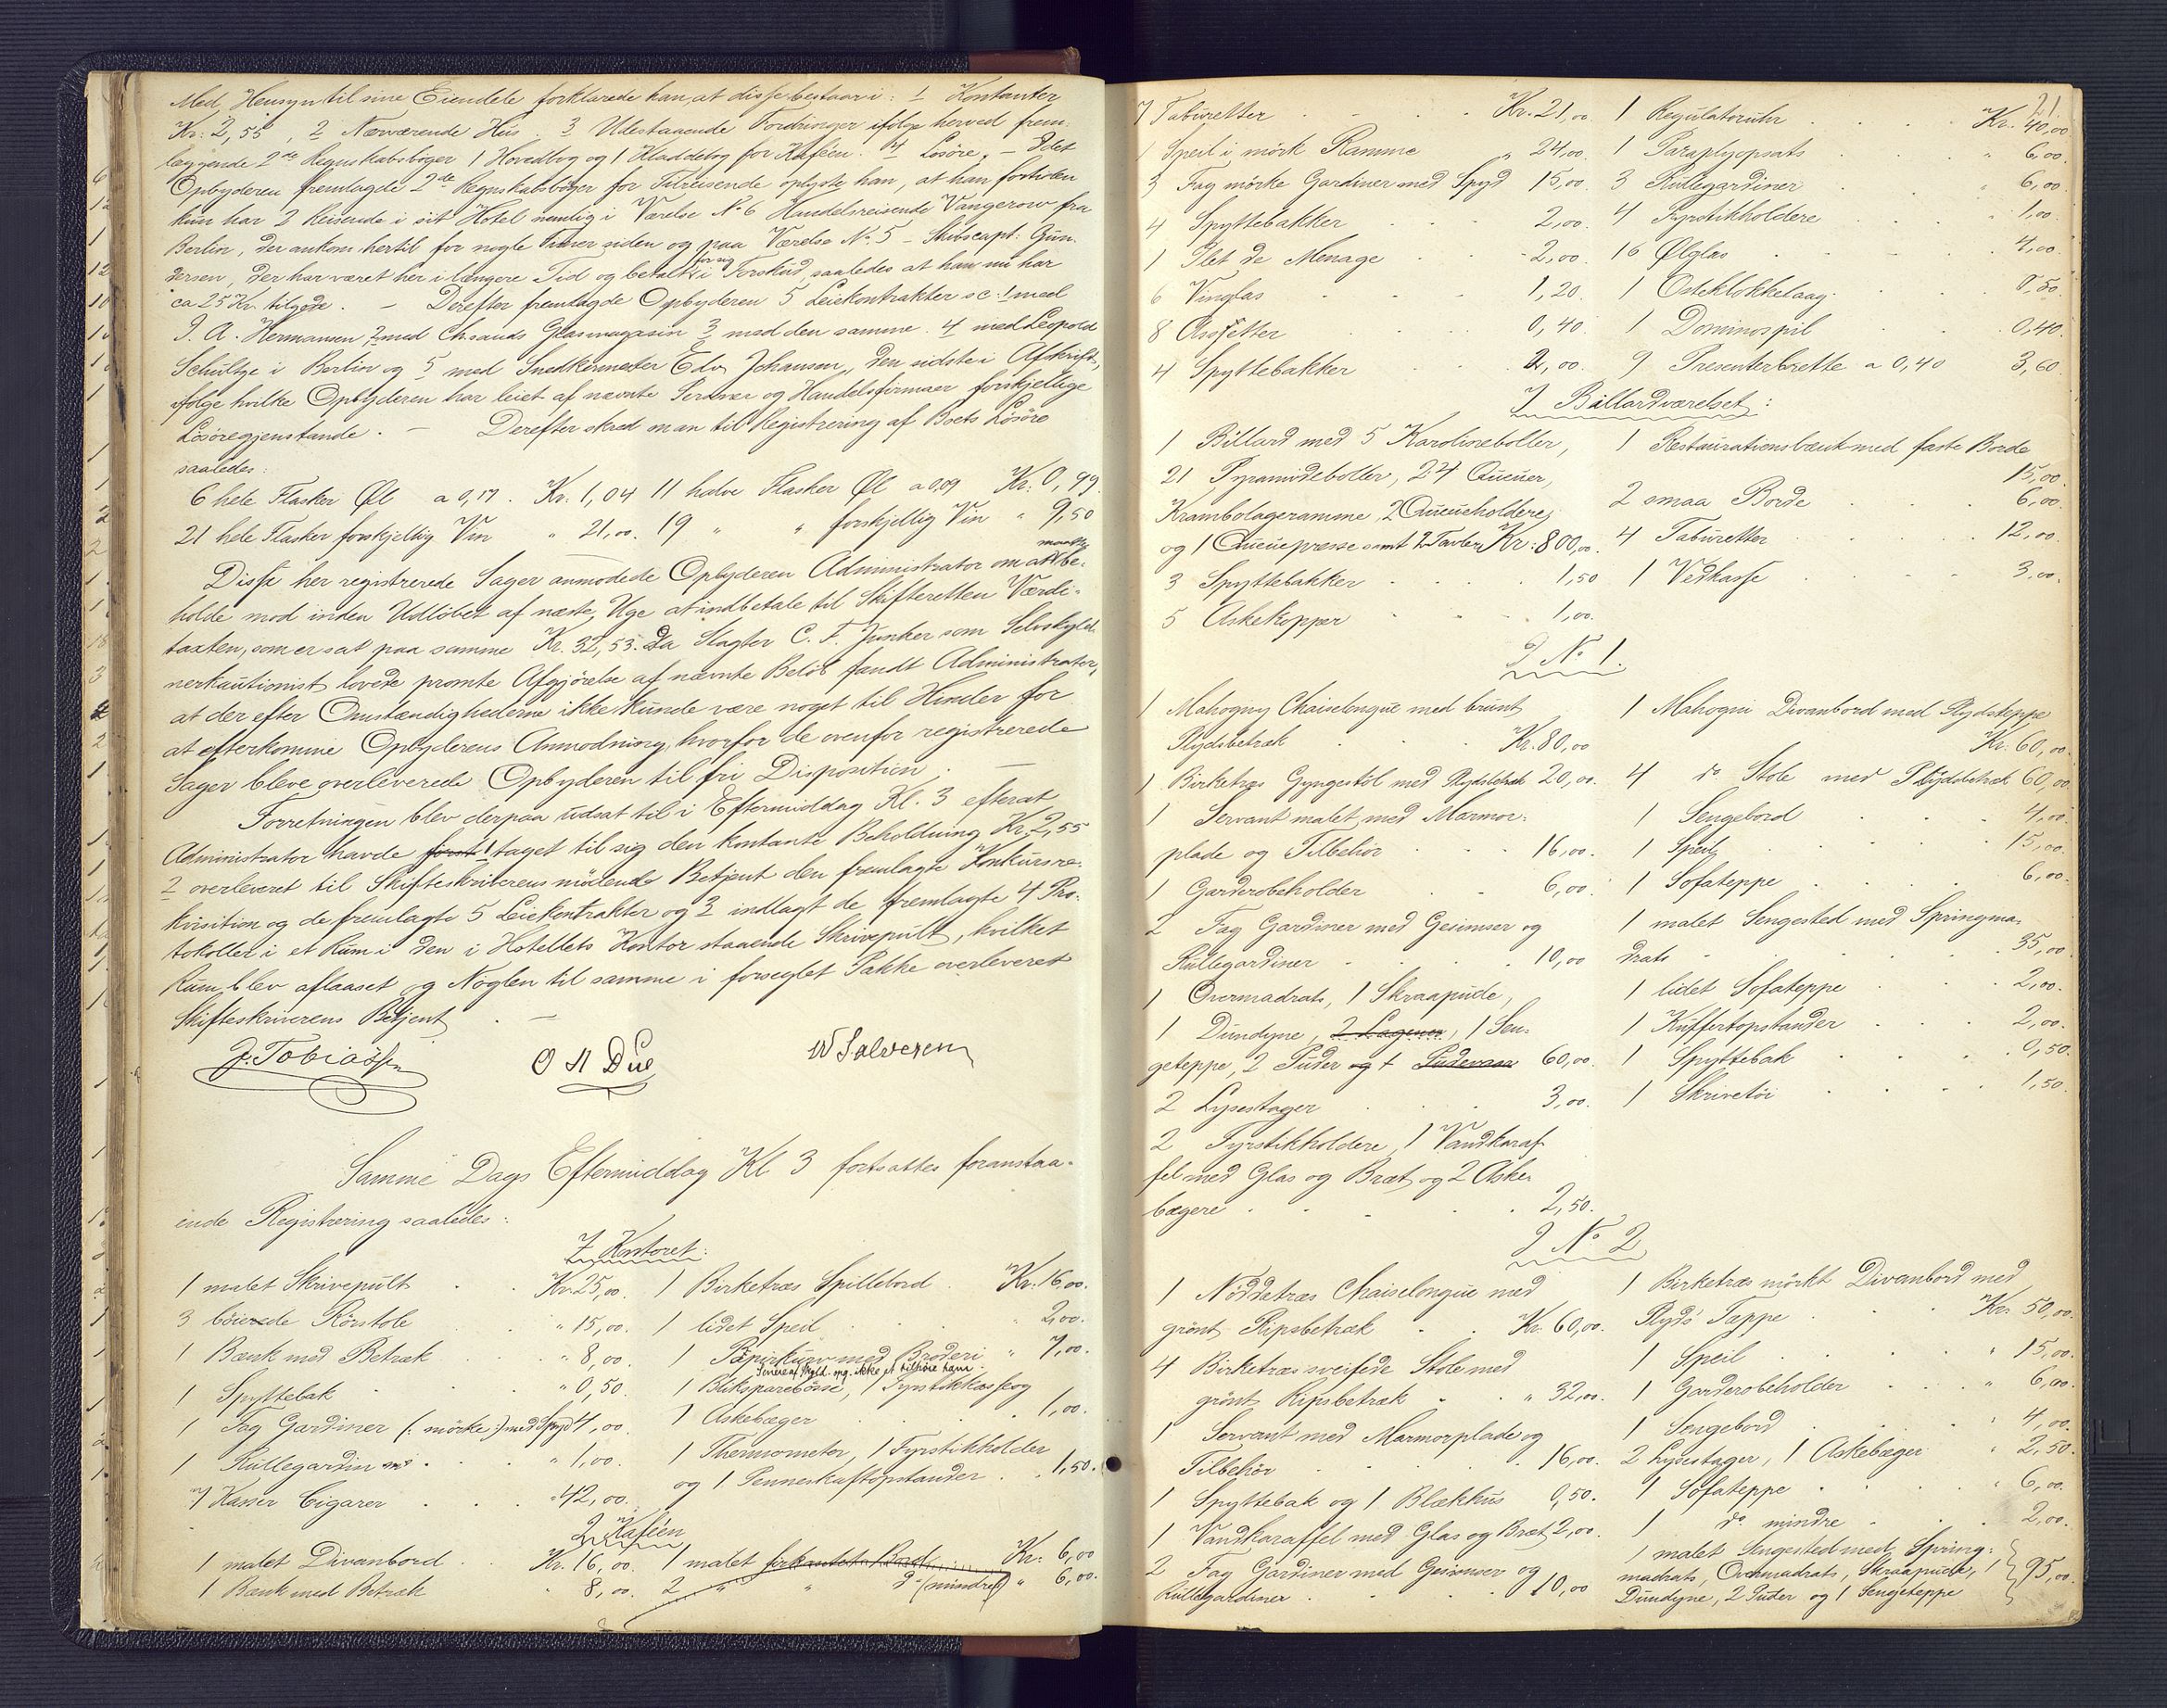 Med Hensyn til sine Eiendele forklarede han, at disse bestaar i: 1 Kontanter
Kr: 2,55, 2 Nærværende Hus. 3 Udestaaende Fordringer ifølge herved frem-
læggende 2de Regnskabsbøger 1 Hovedbog og 1 Kladdebog for Kaféen. 4 Løsøre. – Idet
Opbyderen fremlagde 2de Regnskabsbøger for Tilreisende oplyste han, at han fortiden
kun har 2 Reisende i sit Hotel nemlig i Værelse No 6 Handelsreisende Vangerow fra
Berlin, der ankom hertil for nogle Timer siden og paa Værelse No. 5 – Skibscapt: Gun-
dersen, der har været her i længere Tid og betalt for sig i Forskud, saaledes at han nu har
ca 25 Kr. tilgode. – Derefter fremlagde Opbyderen 5 Leiekontrakter sc: 1 med
J. A. Hermansen, 2 med Chsands Glasmagasin 3 med den samme. 4 med Leopold
Schultze i Berlin og 5 med Snedkermester Edv. Johansen, den sidste i Afskrift,
ifølge hvilke Opbyderen har leiet af nævnte Personer og Handelsfirmaer forskjellige
Løsøregjenstande. – Derefter skred man til Registrering af Boets Løsøre
saaledes:
6 hele Flasker Øl a 0,17. Kr: 1,04 11 halve Flasker Øl a 0,09 Kr: 0,99.
21 hele Flasker forskjellig Vin " 21,00. 19 " " forskjellig Vin " 9,50
Disse her registrerede Sager anmodede Opbyderen Administrator om at maatte be-
holde mod inden Udløbet af næste Uge at indbetale til Skifteretten Værdi-
taxten, som er sat paa samme Kr. 32,53. Da Slagter C. F. Junker som Selvskyld-
nerkautionist lovede promte Afgjørelse af nævnte Beløb fandt Administrator,
at der efter Omstændighederne ikke kunde være noget til Hinder for
at efterkomme Opbyderens Anmodning, hvorfor de ovenfor registrerede
Sager bleve overleverede Opbyderen til fri Disposition. –
Forretningen blev derpaa udsat til i Eftermiddag Kl. 3 efterat
Administrator havde først 1 taget til sig den kontante Beholdning Kr. 2,55
2 overleveret til Skifteskriverens mødende Betjent den fremlagte Konkursre-
kvisition og de fremlagte 5 Leiekontrakter og 3 indlagt de fremlagte 4 Pro-
tokoller i et Rum i den i Hotellets Kontor staaende Skrivepult, hvilket
Rum blev aflaaset og Nøglen til samme i forseglet Pakke overleveret
Skifteskriverens Betjent. –
J. Tobiassen O N Due W Salvesen
Samme Dags Eftermiddag Kl 3 fortsattes foranstaa-
ende Registrering saaledes:
I Kontoret:
1 malet Skrivepult Kr. 25,00. 1 Birketræs Spillebord. Kr. 16,00.
3 bøiede Rørstole " 15,00. 1 lidet Speil " 2,00.
1 Bænk med Betræk " 8,00. 1 Papirkurv med Broderi " 7,00.
Senere af Skyld. opg. ikke at tilhøre ham.
1 Spyttebak " 0,50. 1 Bliksparebøsse, 1 Fyrstikkasse og
1 Fag Gardiner (: mørke :) med Spyd 4,00. 1 Askebæger 1,00.
1 Rullegardin " 1,00. 1 Thermometer, 1 Fyrstikholder
7 Kasser Cigarer " 42,00. og 1 Penneskaftopstander " 1,50.
I Kaféen
1 malet Divanbord Kr. 16,00. 1 malet firkantet Bord Kr: 6,00
1 Bænk med Betræk " 8,00. 2 " " do (mindre) " 6,00.
21
7 Taburetter Kr. 21,00. 1 Regulatoruhr Kr. 40,00
1 Speil i mørk Ramme " 24,00. 1 Paraplyopsats " 6,00.
3 Fag mørke Gardiner med Spyd 15,00. 3 Rullegardiner " 6,00.
4 Spyttebakker 2,00. 4 Fyrstikholdere 1,00.
1 Plet de Menage 2,00. 16 Ølglas 4,00.
6 Vinglas 1,20. 1 Osteklokkelaag 0,50
8 Assietter 0,40. 1 Dominospil 0,40.
4 Spyttebakker 2,00. 9 Presenterbrette a 0,40 3,60.
I Billardværelset:
1 Billard med 5 Karolineboller, 1 Restaurationsbænk med faste Borde
21 Pyramideboller, 24 Queuer, 15,00.
Krambolageramme, 2 Queueholdere, 2 smaa Borde 6,00.
og 1 Queuepresse samt 2 Tavler Kr: 800,00. 4 Taburetter 12,00.
3 Spyttebakker 1,50 1 Vedkasse 3,00.
5 Askekopper 1,00.
I No 1.
1 Mahogny Chaiselongue med brunt 1 Mahogni Divanbord med Plydsteppe
Plydsbetræk Kr. 80,00 Kr. 60,00.
1 Birketræs Gyngestol med Plydsbetræk 20,00. 4 do Stole med Plydsbetræk 60,00
1 Servant malet med Marmor- 1 Sengebord 4,00.
plade og Tilbehør 16,00. 1 Speil 15,00.
1 Garderobeholder 6,00. 1 Sofateppe 6,00.
2 Fag Gardiner med Gesimser og 1 malet Sengested med Springma-
Rullegardiner 10,00 drats 35,00
1 Overmadrats, 1 Skraapude, 1 lidet Sofateppe 2,00.
1 Dundyne, 2 Lagener, 1 Sen- 1 Kuffertopstander 2,00.
geteppe, 2 Puder og 1 Pudevaar 60,00. 1 Spyttebak 0,50.
2 Lysestager 3,00. 1 Skrivetøi 1,50.
2 Fyrstikholdere, 1 Vandkaraf-
fel med Glas og Bræt og 2 Aske-
bægere 2,50.
I No 2
1 Nøddetræs Chaiselongue med 1 Birketræs mørkt Divanbord med
grønt Ripsbetræk Kr. 60,00. Plyds Tæppe Kr. 50,00.
4 Birketræs sveifede Stole med 1 Speil " 15,00.
grønt Ripsbetræk " 32,00. 1 Garderobeholder " 6,00.
1 Servant med Marmorplade og 1 Sengebord " 4,00.
Tilbehør 16,00. 2 Lysestager, 1 Askebæger " 2,50.
1 Spyttebak og 1 Blækhus 0,50. 1 Sofateppe " 6,00.
1 Vandkaraffel med Glas og Bræt 2,00. 1 do mindre 2,00.
2 Fag Gardiner med Gesimser og 1 malet Sengested med Spring-
Rullegardiner 10,00 madrats, Overmadrats, Skraapude, 1 95,00.
Dundyne, 2 Puder og 1 Sengeteppe